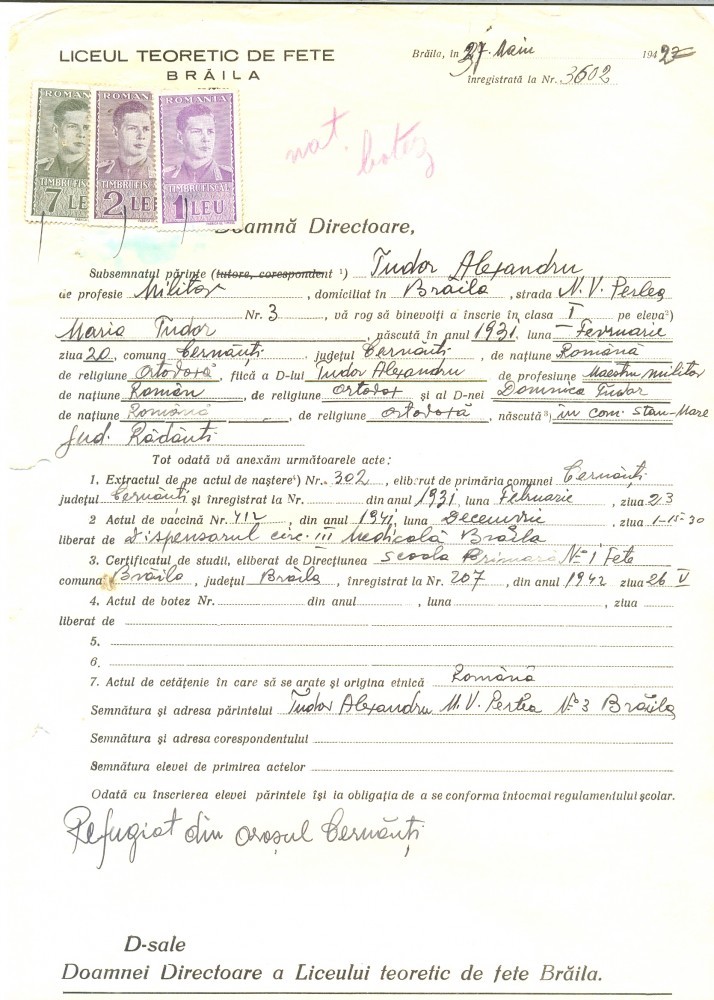 LICEUL TEORETIC DE FETE
BRĂILA
Brăila, în 27 Maiu 1942
înregistrată la Nr. 3602
ROMANIA TIMBRU FISCAL 7 LE
ROMANIA TIMBRU FISC 2 LE
ROMANIA TIMBRU FISCAL 1 LEU
nat. botez
Doamnă Directoare,
Subsemnatul părinte (tutore, corespondent ¹) Tudor Alexandru
de profesie Militar, domiciliat în Brăila, strada N. V. Perlea
Nr. 3, vă rog să binevoiți a înscrie în clasa I pe eleva²)
Maria Tudor, născută în anul 1931, luna Fevruarie
ziua 20, comuna Cernăuți județul Cernăuți, de națiune Română
de religiune Ortodoxă, fiică a D-lui Tudor Alexandru de profesiune Maestru militar
de națiune Român, de religiune ortodox și al D-nei Domnica Tudor
de națiune Română, de religiune ortodoxă, născută³) in com. Stan-Mare
Jud. Rădăuti
Tot odată vă anexăm următoarele acte:
1. Extractul de pe actul de naștere¹) Nr. 302, eliberat de primăria comunei Cernăuți
județul Cernăuți și înregistrat la Nr. din anul 1931, luna Februarie, ziua 23
2 Actul de vaccină Nr. 412, din anul 1941, luna Decemvrie, ziua 1-15-30
liberat de Dispensarul circ. III Medicală Brăila
3. Certificatul de studii, eliberat de Direcțiunea Scoala Primară No 1 Fete
comuna Brăila, județul Brăila, înregistrat la Nr. 207, din anul 1942 ziua 26 V
4. Actul de botez Nr. din anul, luna, ziua
liberat de
5.
6.
7. Actul de cetățenie în care să se arate și origina etnică Română
Semnătura și adresa părintelui Tudor Alexandru N. V. Perlea No 3 Brăila
Semnătura și adresa corespondentului
Semnătura elevei de primirea actelor
Odată cu înscrierea elevei părintele își ia obligația de a se conforma întocmai regulamentului școlar.
Refugiat din orașul Cernăuți
D-sale
Doamnei Directoare a Liceului teoretic de fete Brăila.